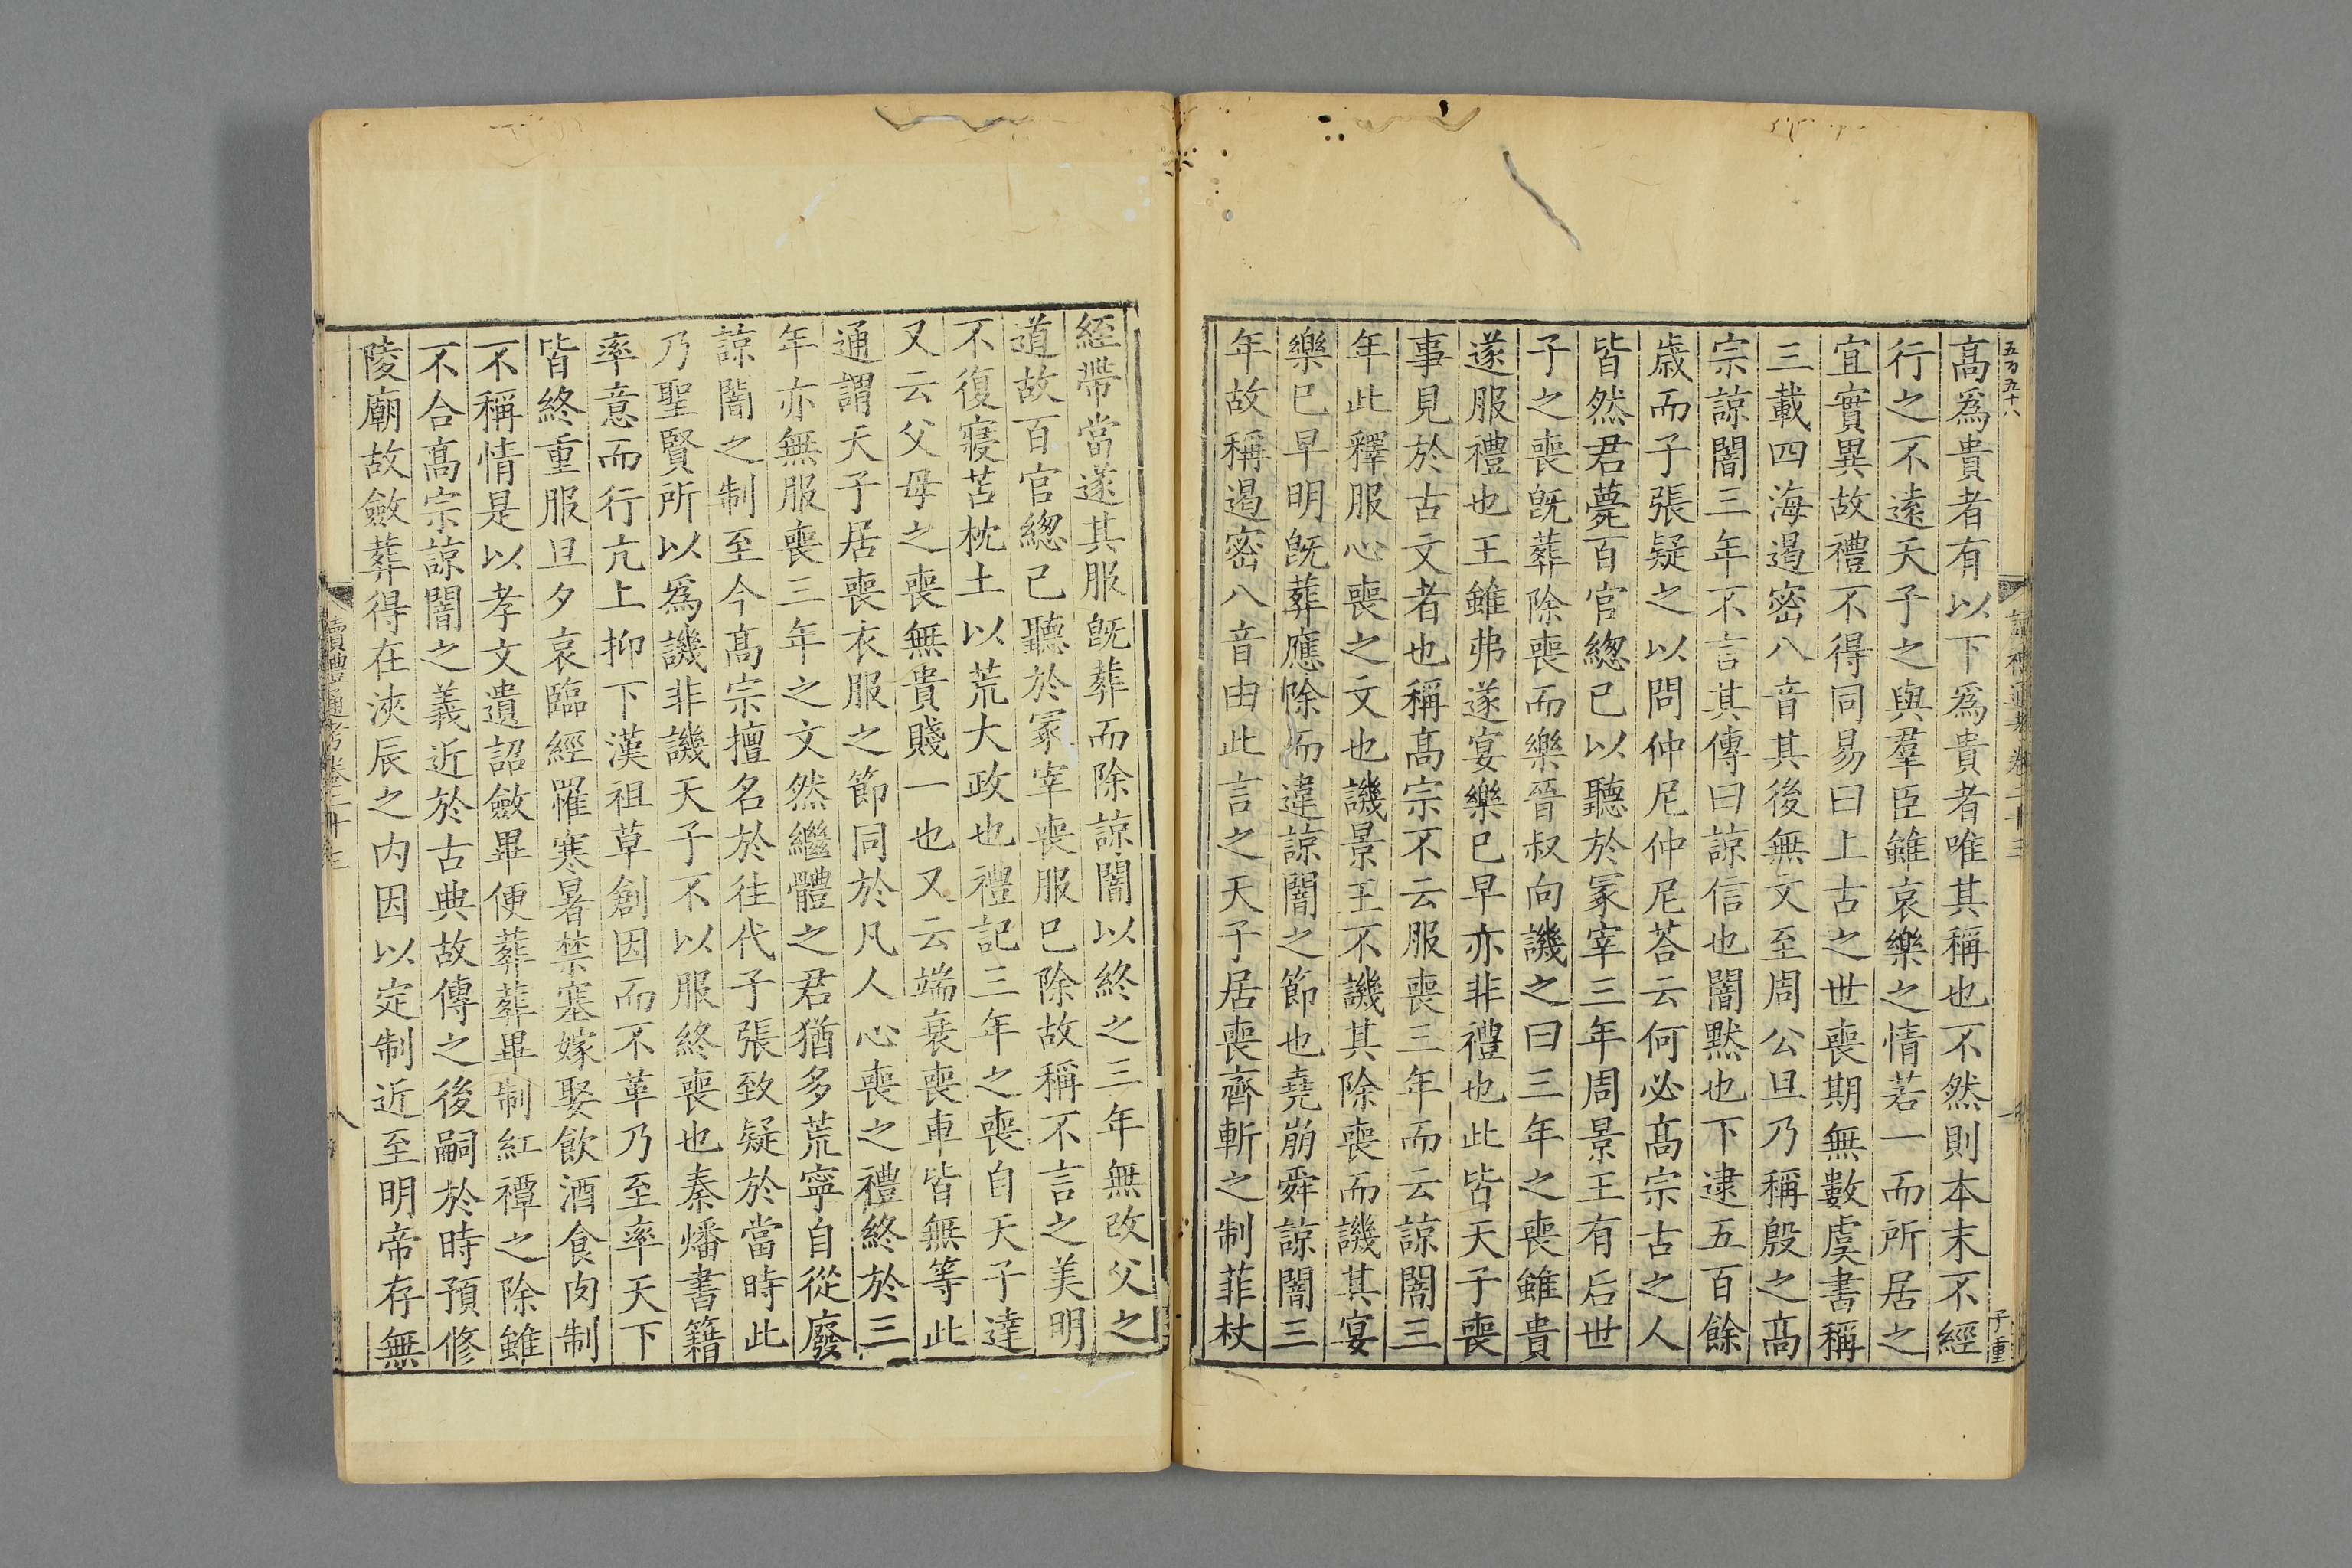 五百九十八
子重
高爲貴者有以下爲貴者唯其稱也不然則本末不經
行之不遠天子之與羣臣雖哀樂之情若一而所居之
宜實異故禮不得同易曰上古之世喪期無數虞書稱
三載四海遏密八音其後無文至周公旦乃稱殷之高
宗諒闇三年不言其傳曰諒信也闇黙也下逮五百餘
歲而子張疑之以問仲尼仲尼荅云何必高宗古之人
皆然君薨百官緫已以聽於冢宰三年周景王有后世
子之喪旣葬除喪而樂晉叔向譏之曰三年之喪雖貴
遂服禮也王雖弗遂宴樂已早亦非禮也此皆天子喪
事見於古文者也稱高宗不云服喪三年而云諒闇三
年此釋服心喪之文也譏景王不譏其除喪而譏其宴
樂巳早明旣葬應除而違諒闇之節也堯崩舜諒闇三
年故稱遏密八音由此言之天子居喪齊斬之制菲杖
絰帶當遂其服旣葬而除諒闇以終之三年無改父之
道故百官緫己聽於冢宰喪服巳除故稱不言之美明
不復寢苫枕土以荒大政也禮記三年之喪自天子達
又云父母之喪無貴賤一也又云端衰喪車皆無等此
通謂天子居喪衣服之節同於凡人心喪之禮終於三
年亦無服喪三年之文然繼體之君猶多荒寧自從廢
諒闇之制至今高宗擅名於往代子張致疑於當時此
乃聖賢所以爲譏非譏天子不以服終喪也秦燔書籍
率意而行亢上抑下漢祖草創因而不革乃至率天下
皆終重服旦夕哀臨經罹寒暑禁塞嫁娶飮酒食肉制
不稱情是以孝文遺詔斂畢便葬葬畢制紅禫之除雖
不合高宗諒闇之義近於古典故傳之後嗣於時預修
陵廟故斂葬得在浹辰之内因以定制近至明帝存無
讀禮通考卷二十三
八